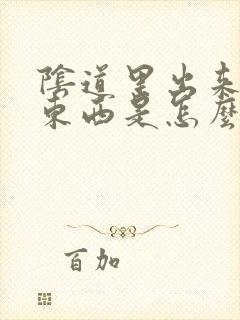 陰道里出来
東西是怎麼
百加